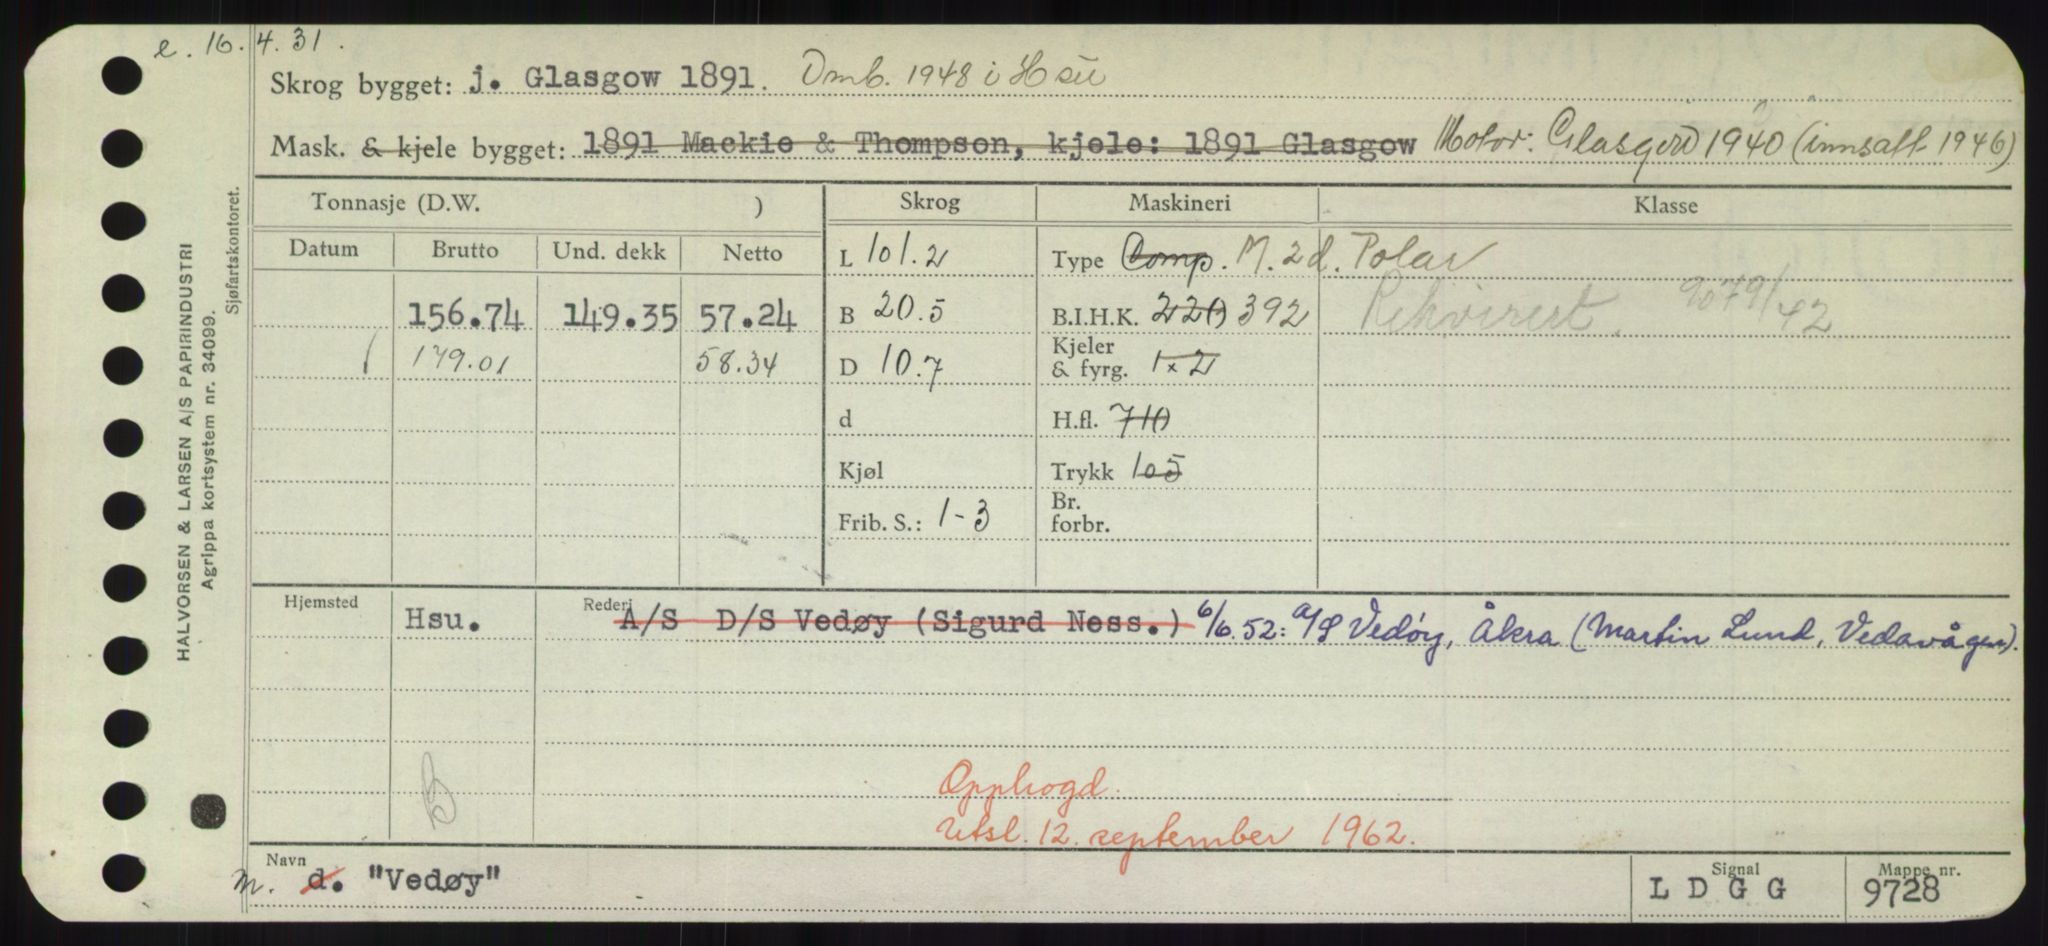 e. 16.4.31.
Skrog bygget: j. Glasgow 1891. Omb. 1948 i Hsu
Mask. & kjele bygget: 1891 Mackie & Thompson, kjele: 1891 Glasgow Motor: Glasgow 1940 (innsatt 1946)
Tonnasje (D.W. ) Skrog Maskineri Klasse
Datum Brutto Und. dekk Netto L 101.2 Type Comp. M. 2d. Polar
156.74 149.35 57.24 B 20.5 B.I.H.K. 220 392 Rekvirert. /42
179.01 58.34 D 10.7 Kjeler & fyrg. 1x2
d H.fl. 710
Kjøl Trykk 105
Frib. S.: 1-3 Br. forbr.
Hjemsted Hsu. Rederi A/S D/S Vedøy (Sigurd Ness.) 6/6.52: A/S Vedøy, Åkra (Martin Lund, Vedavågen).
B
Opphogd.
Utsl. 12. september 1962.
Navn m. d. "Vedøy" Signal L D G G Mappe nr. 9728
HALVORSEN & LARSEN A/S PAPIRINDUSTRI
Agrippa kortsystem nr. 34099.
Sjøfartskontoret.